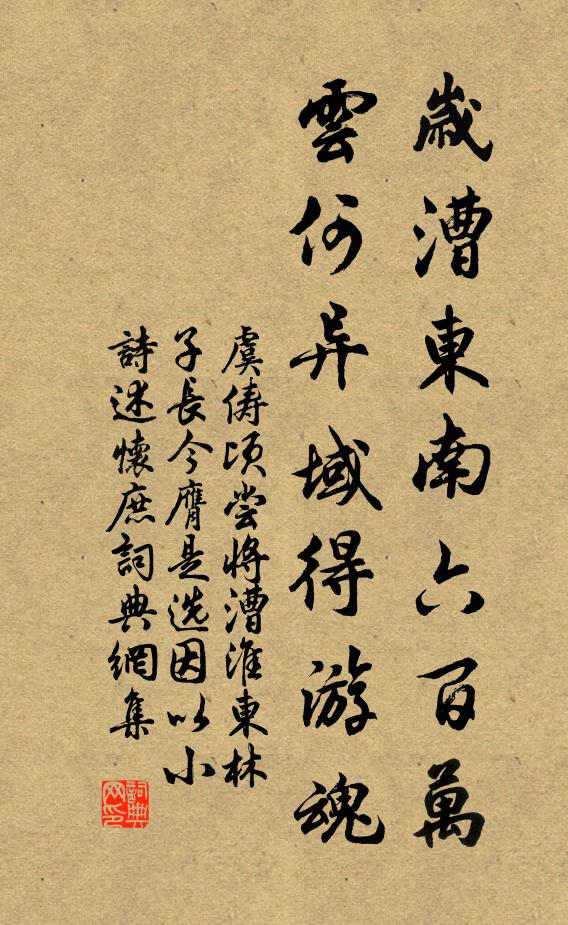 歲漕東南六百萬
雲何异域得游魂
虞儔頃嘗將漕淮東林
子長今膺是选因以小
詩述懷庶詞典網集
詞典
网印